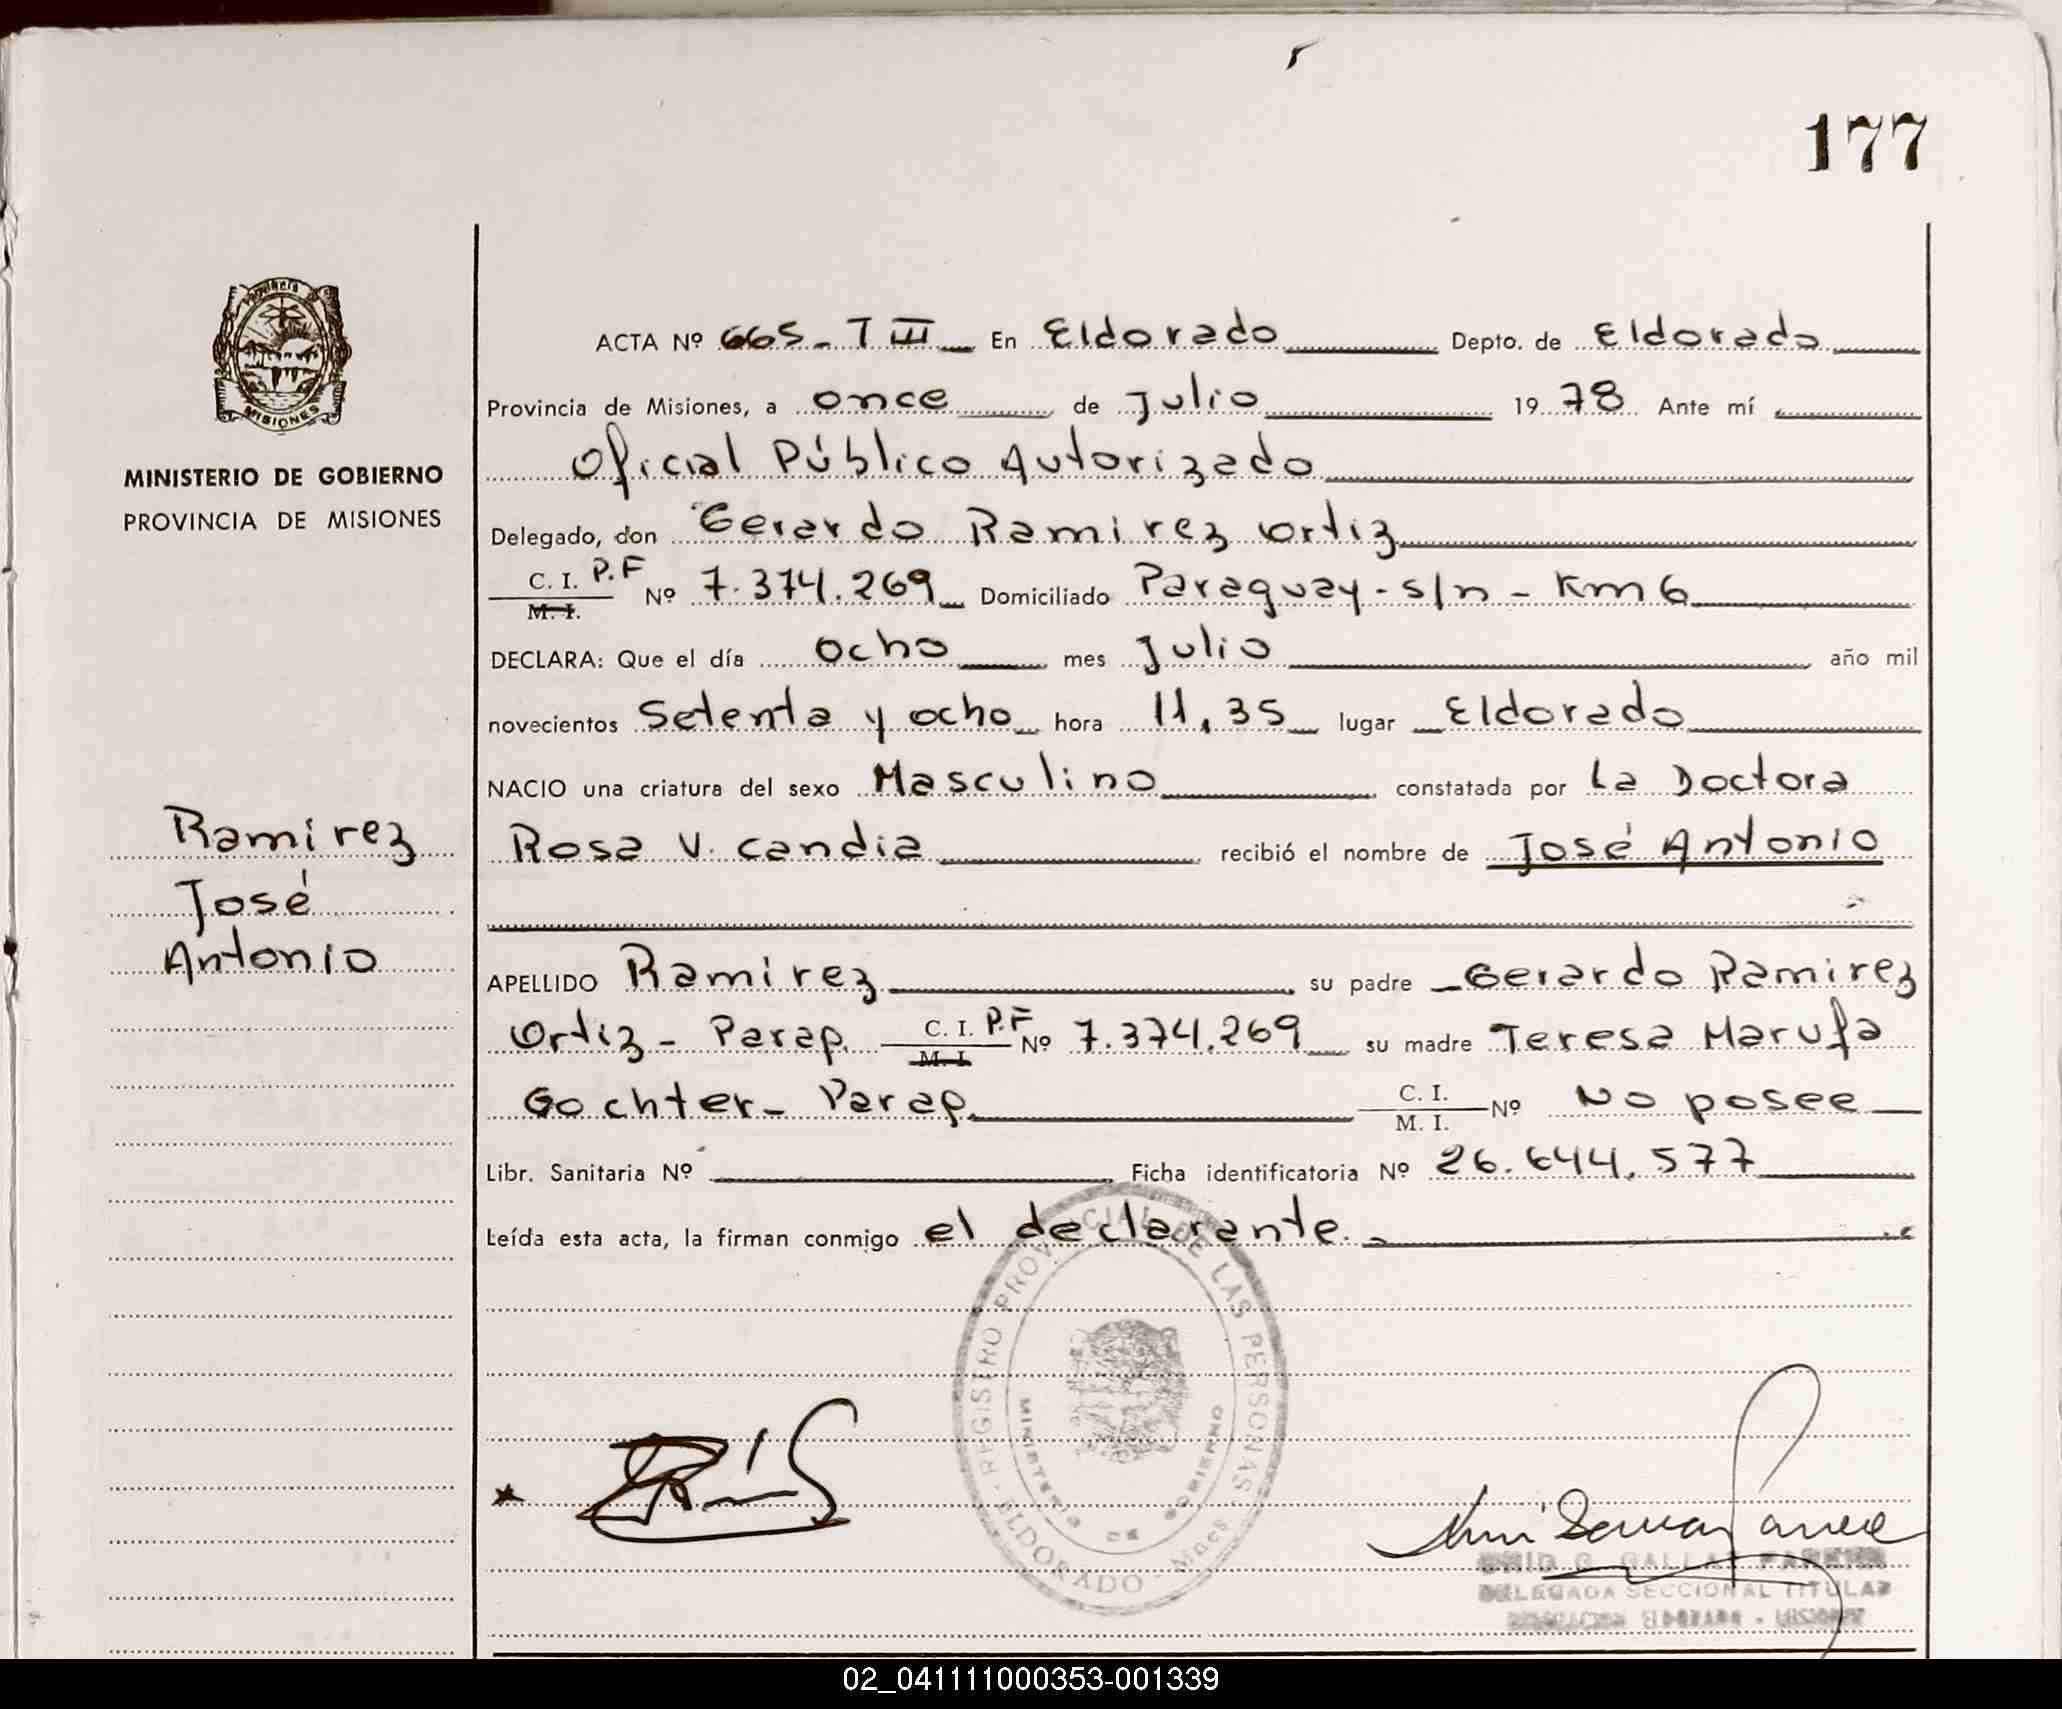 177
ACTA Nº 665 - T III En Eldorado Depto. de Eldorado
Provincia de Misiones, a once de Julio 1978 Ante mí
Oficial Público Autorizado
MINISTERIO DE GOBIERNO
PROVINCIA DE MISIONES
Delegado, don Gerardo Ramirez Ortiz
C. I. P.F Nº 7.374.269 Domiciliado Paraguay - s/n - Km 6
M. I.
DECLARA: Que el día ocho mes Julio año mil
novecientos Setenta y ocho hora 11,35 lugar Eldorado
NACIO una criatura del sexo Masculino constatada por La Doctora
Rosa V. Candia recibió el nombre de José Antonio
Ramirez
José
Antonio
APELLIDO Ramirez su padre Gerardo Ramirez
Ortiz - Parag. C. I. P.F Nº 7.374.269 su madre Teresa Marufa
M. I.
Gochter - Parag. C. I. Nº No posee
M. I.
Libr. Sanitaria Nº Ficha identificatoria Nº 26.644.577
Leída esta acta, la firman conmigo el declarante.
REGISTRO PROVINCIAL DE LAS PERSONAS
MINISTERIO DE GOBIERNO
ELDORADO - Mnes
DELEGADA SECCIONAL TITULAR
02_041111000353-001339